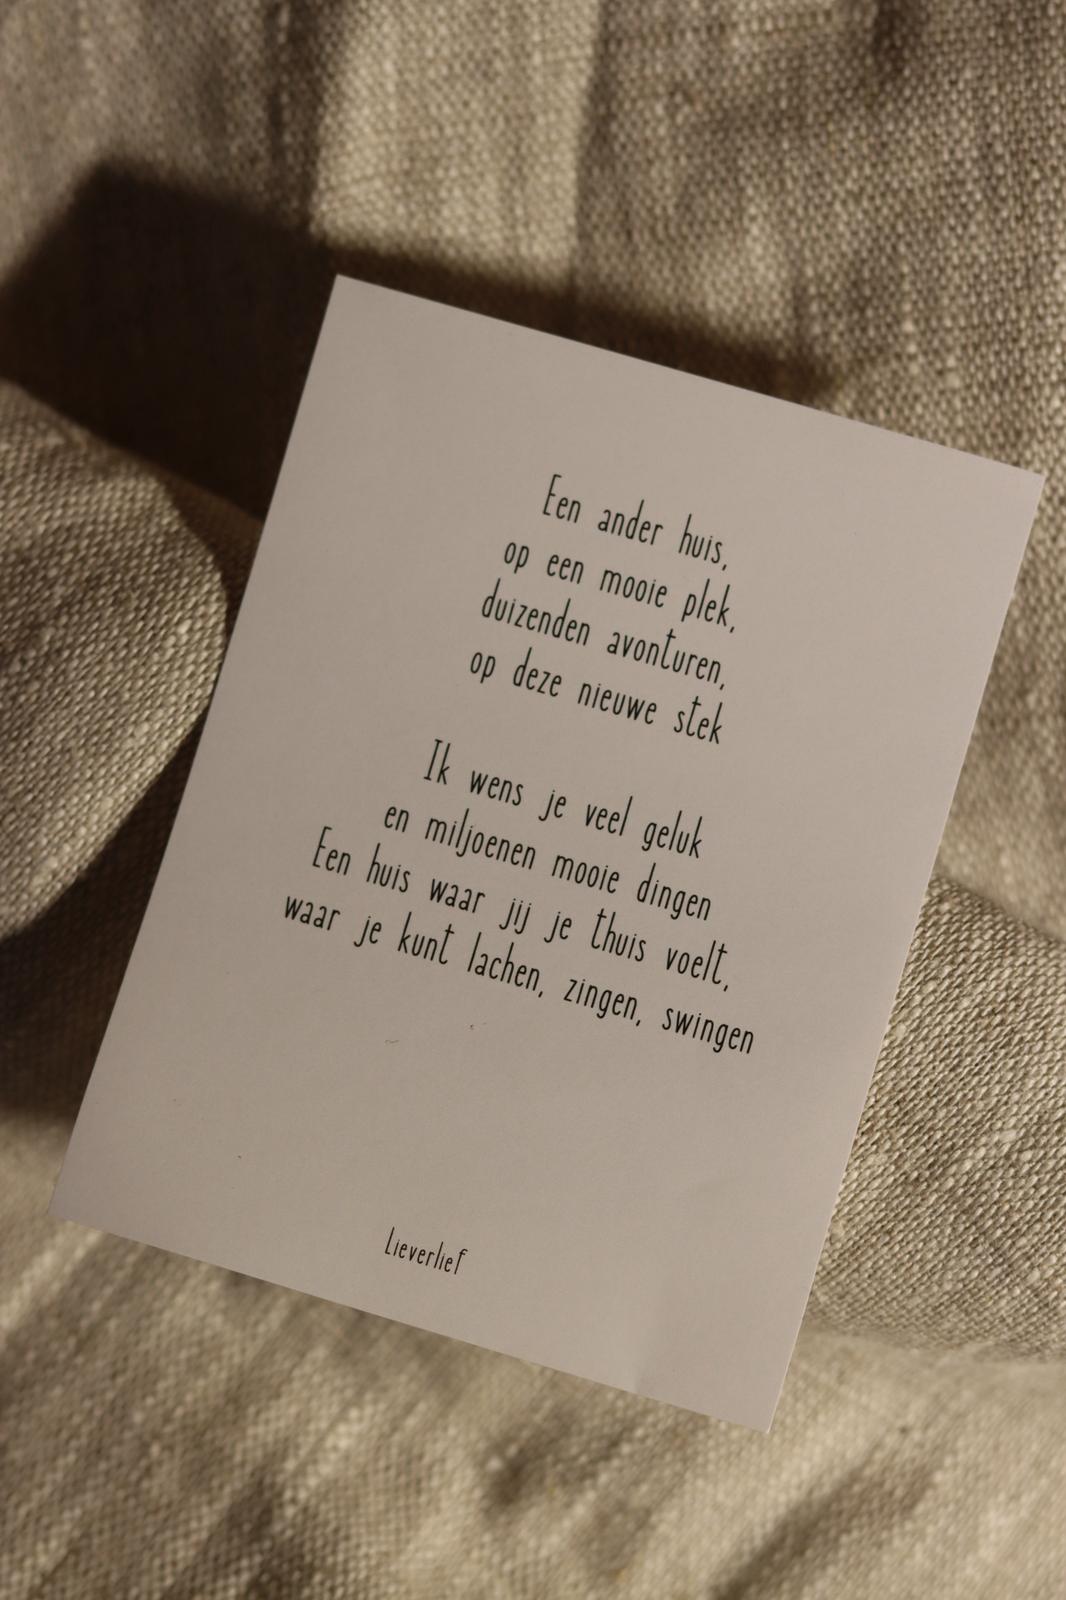 Een ander huis,
op een mooie plek,
duizenden avonturen,
op deze nieuwe stek
Ik wens je veel geluk
en miljoenen mooie dingen
Een huis waar jij je thuis voelt,
waar je kunt lachen, zingen, swingen
Lieverlief